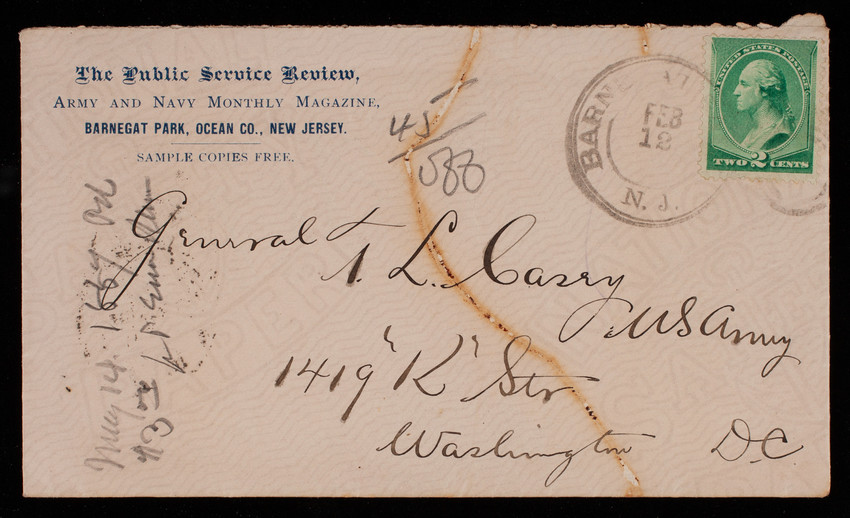 The Public Service Review,
ARMY AND NAVY MONTHLY MAGAZINE,
BARNEGAT PARK, OCEAN CO., NEW JERSEY.
SAMPLE COPIES FREE.
45
588
BARNE VI
FEB
12
N. J.
UNITED STATES POSTAGE
TWO 2 CENTS
General T. L. Casey
US Army
1419 "K" Str
Washington DC